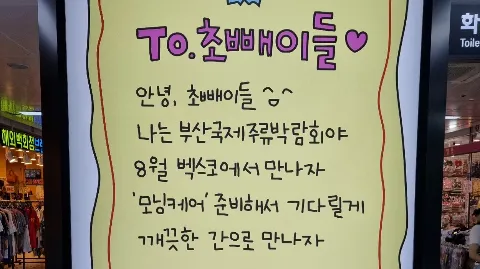 To.초빼이들♥
안녕, 초빼이들 ^_^
나는 부산국제주류박람회야
8월 벡스코에서 만나자
'모닝케어' 준비해서 기다릴게
깨끗한 간으로 만나자
해외백화점
화
Toile